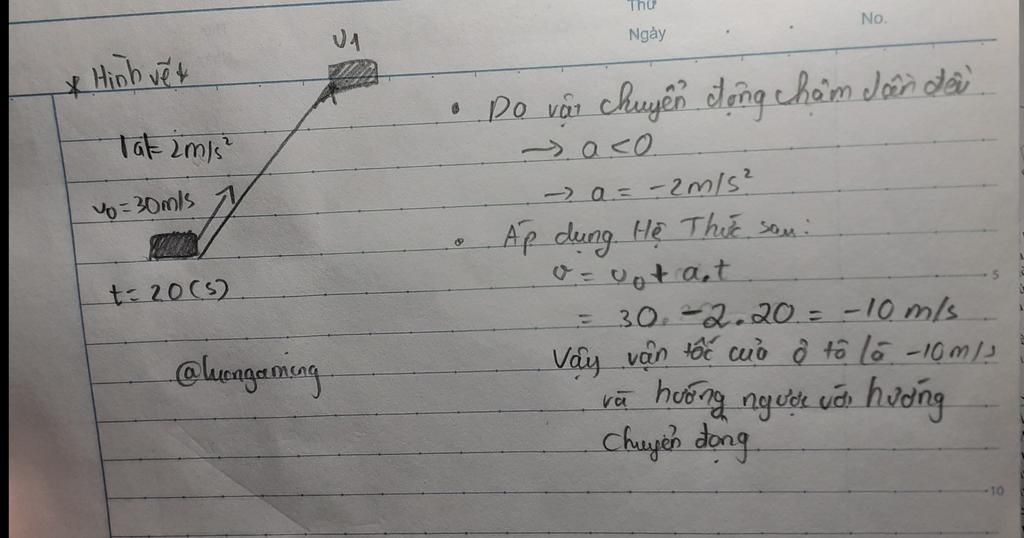 Thứ
Ngày
No.
* Hình vẽ *
v1
|a|= 2m/s²
v0 = 30m/s
t = 20 (s)
@luongaming
• Do vật chuyển động chậm dần đều
→ a < 0
→ a = -2m/s²
• Áp dụng Hệ Thức sau:
v = v0 + a.t
= 30 - 2.20 = -10 m/s
Vậy vận tốc của ô tô là -10 m/s
và hướng ngược với hướng
chuyển động
5
10